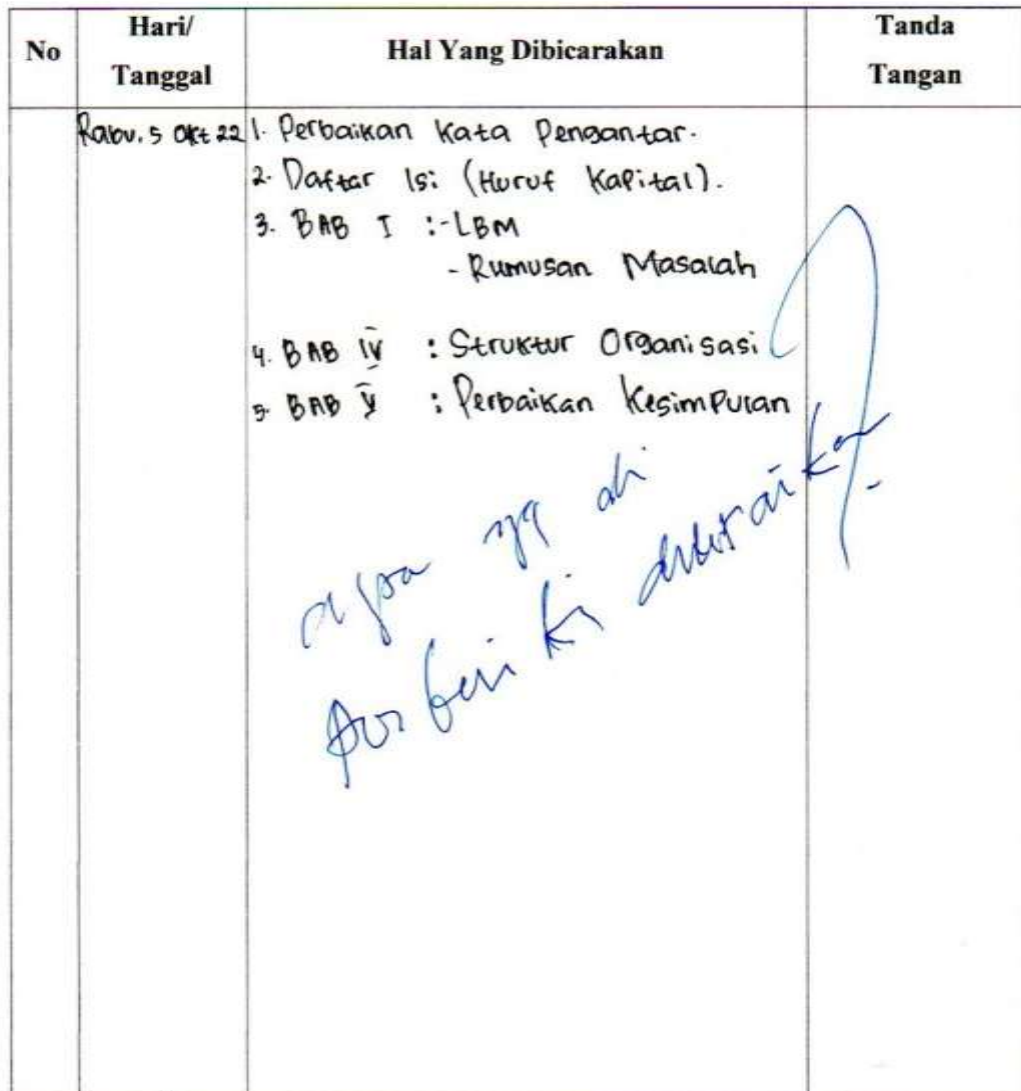 No
Hari/
Tanggal
Hal Yang Dibicarakan
Tanda
Tangan
Rabu. 5 Okt 22
1. Perbaikan Kata Pengantar.
2. Daftar Isi (Huruf Kapital).
3. BAB I :-LBM
- Rumusan Masalah
4. BAB IV : Struktur Organisasi
5. BAB V : Perbaikan Kesimpulan
apa yg di